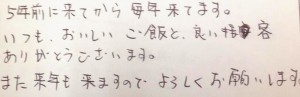 5年前に来てから毎年来てます。
いつも、おいしい ご飯と、良い接客
ありがとうございます。
また来年も来ますので よろしくお願いします。